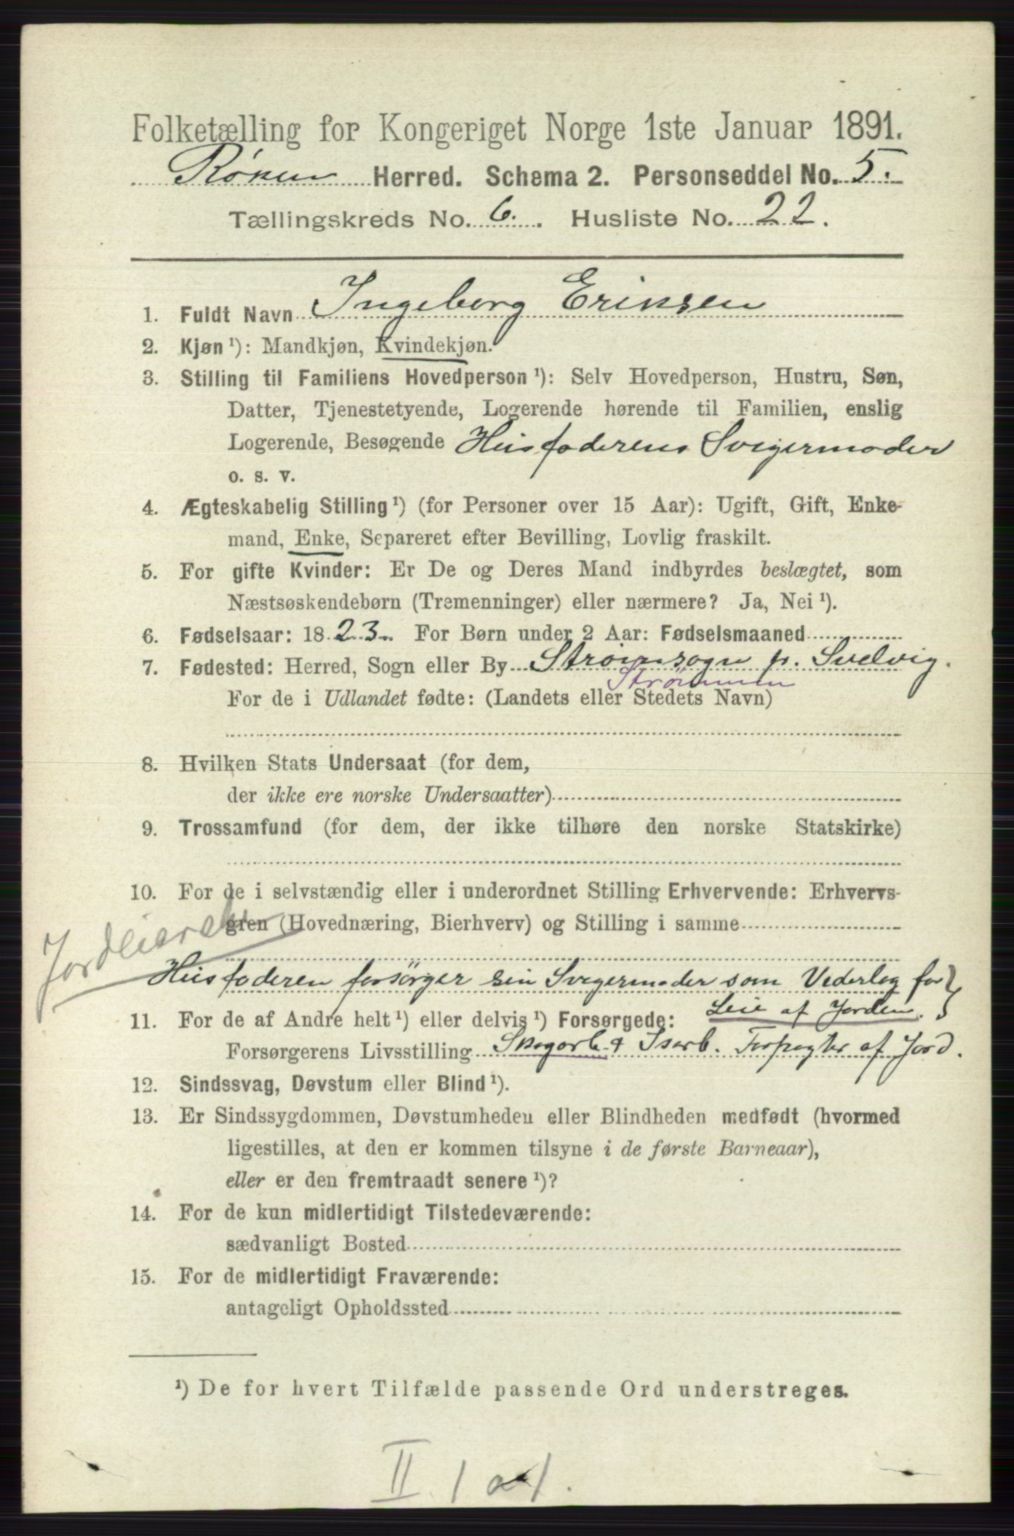 Folketælling for Kongeriget Norge 1ste Januar 1891.
Røken Herred. Schema 2. Personseddel No. 5.
Tællingskreds No. 6. Husliste No. 22.
1. Fuldt Navn Ingeborg Eriksen
2. Kjøn ¹): Mandkjøn, Kvindekjøn.
3. Stilling til Familiens Hovedperson ¹): Selv Hovedperson, Hustru, Søn,
Datter, Tjenestetyende, Logerende hørende til Familien, enslig
Logerende, Besøgende Husfaderens Svigermoder
o. s. v.
4. Ægteskabelig Stilling ¹) (for Personer over 15 Aar): Ugift, Gift, Enke-
mand, Enke, Separeret efter Bevilling, Lovlig fraskilt.
5. For gifte Kvinder: Er De og Deres Mand indbyrdes beslægtet, som
Næstsøskendebørn (Tremenninger) eller nærmere? Ja, Nei ¹).
6. Fødselsaar: 1823. For Børn under 2 Aar: Fødselsmaaned
7. Fødested: Herred, Sogn eller By Strømsogn p. Svelvig.
Strømmen
For de i Udlandet fødte: (Landets eller Stedets Navn)
8. Hvilken Stats Undersaat (for dem,
der ikke ere norske Undersaatter)
9. Trossamfund (for dem, der ikke tilhøre den norske Statskirke)
10. For de i selvstændig eller i underordnet Stilling Erhvervende: Erhvervs-
gren (Hovednæring, Bierhverv) og Stilling i samme
Husfaderen forsørger sin Svigermoder som Vederlag for
Leie af Jorden.
11. For de af Andre helt ¹) eller delvis ¹) Forsørgede:
Forsørgerens Livsstilling Skogarb. & Isarb. Forpagter af Jord.
12. Sindssvag, Døvstum eller Blind ¹).
13. Er Sindssygdommen, Døvstumheden eller Blindheden medfødt (hvormed
ligestilles, at den er kommen tilsyne i de første Barneaar),
eller er den fremtraadt senere ¹)?
14. For de kun midlertidigt Tilstedeværende:
sædvanligt Bosted
15. For de midlertidigt Fraværende:
antageligt Opholdssted
¹) De for hvert Tilfælde passende Ord understreges.
II. 1 a 1.